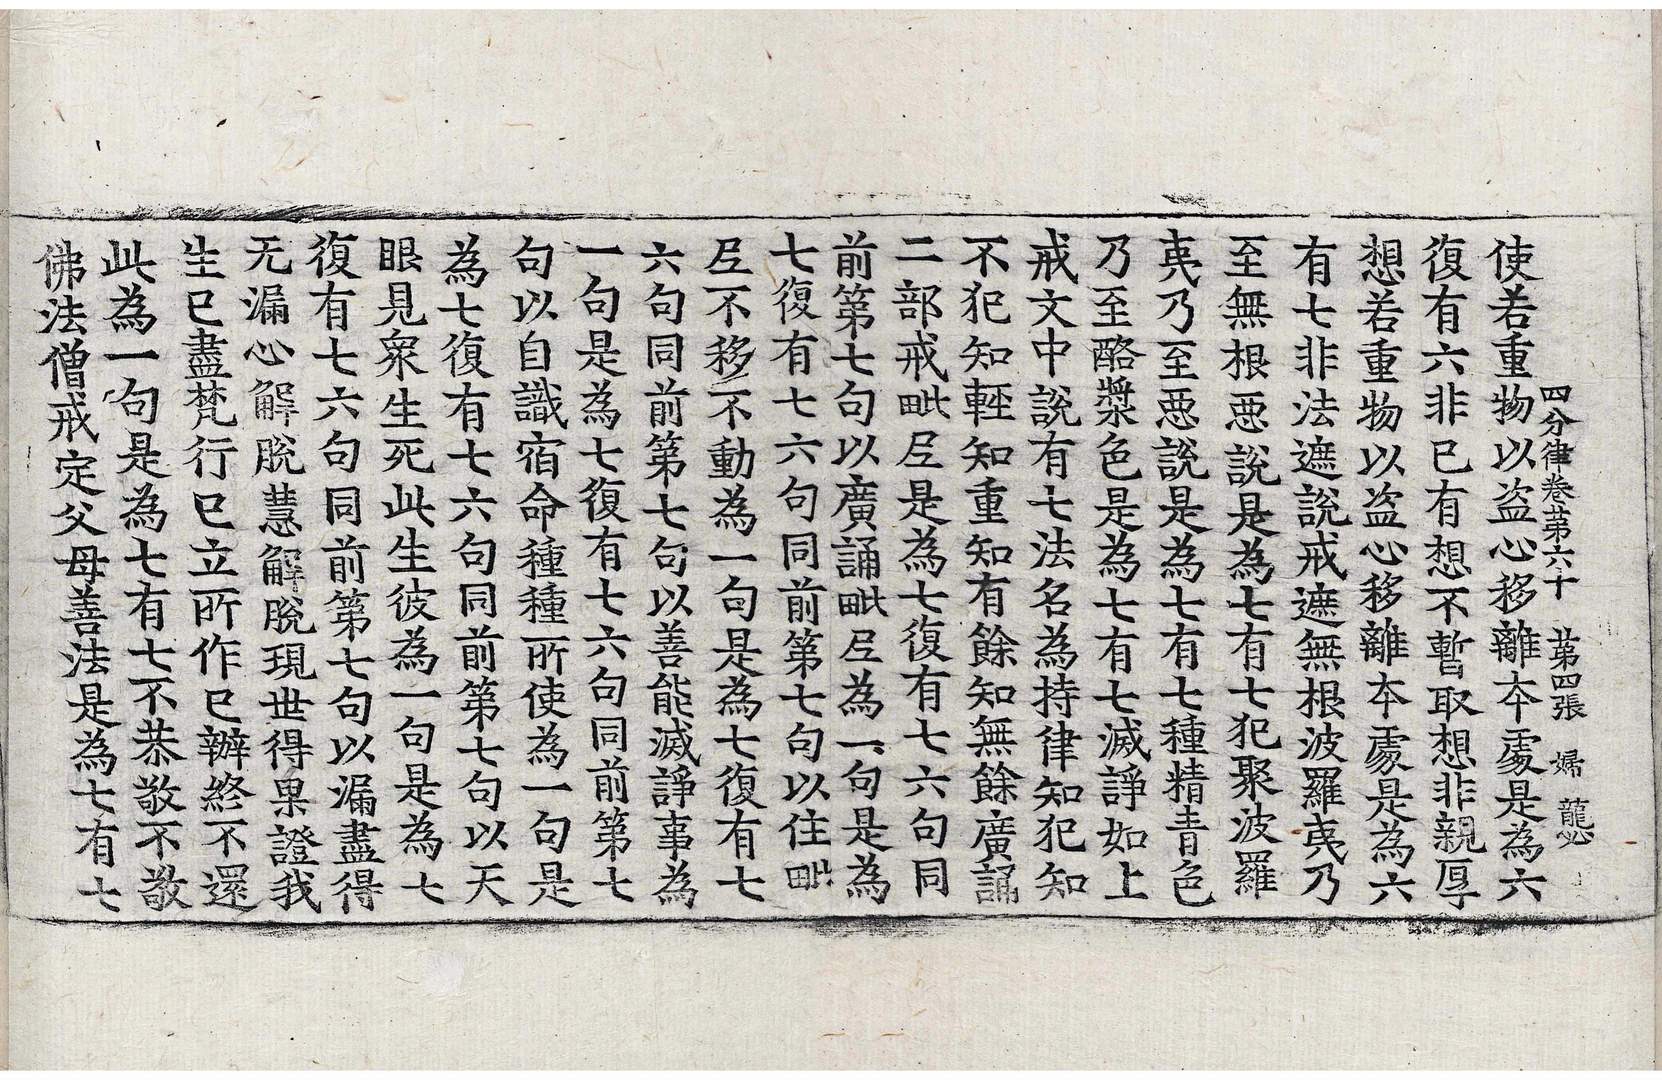 四分律卷苐六十　苐四張　婦　龍必
使若重物以盗心移離夲處是為六
復有六非已有想不暫取想非親厚
想若重物以盗心移離夲處是為六
有七非法遮說戒遮無根波羅夷乃
至無根惡說是為七有七犯聚波羅
夷乃至惡說是為七有七種精青色
乃至酪漿色是為七有七滅諍如上
戒文中說有七法名為持律知犯知
不犯知輕知重知有餘知無餘廣誦
二部戒毗尼是為七復有七六句同
前第七句以廣誦毗尼為一句是為
七復有七六句同前第七句以住毗
尼不移不動為一句是為七復有七
六句同前第七句以善能滅諍事為
一句是為七復有七六句同前第七
句以自識宿命種種所使為一句是
為七復有七六句同前第七句以天
眼見衆生死此生彼為一句是為七
復有七六句同前第七句以漏盡得
无漏心解脫慧解脫現世得果證我
生已盡梵行已立所作已辦終不還
此為一句是為七有七不恭敬不敬
佛法僧戒定父母善法是為七有七